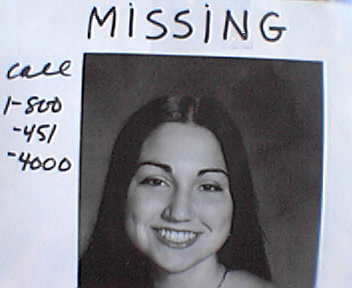 MiSSiNG
call
1-800
-451
-4000